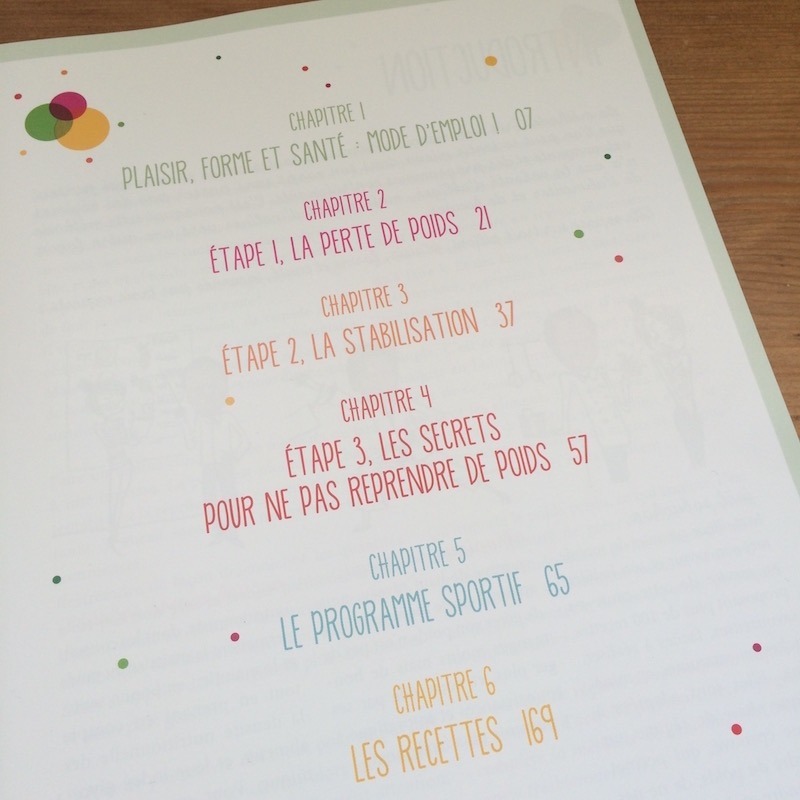 INTRODUCTION
CHAPITRE 1
PLAISIR, FORME ET SANTÉ : MODE D'EMPLOI ! 07
CHAPITRE 2
ÉTAPE 1, LA PERTE DE POIDS 21
CHAPITRE 3
ÉTAPE 2, LA STABILISATION 37
CHAPITRE 4
ÉTAPE 3, LES SECRETS
POUR NE PAS REPRENDRE DE POIDS 57
CHAPITRE 5
LE PROGRAMME SPORTIF 65
CHAPITRE 6
LES RECETTES 169